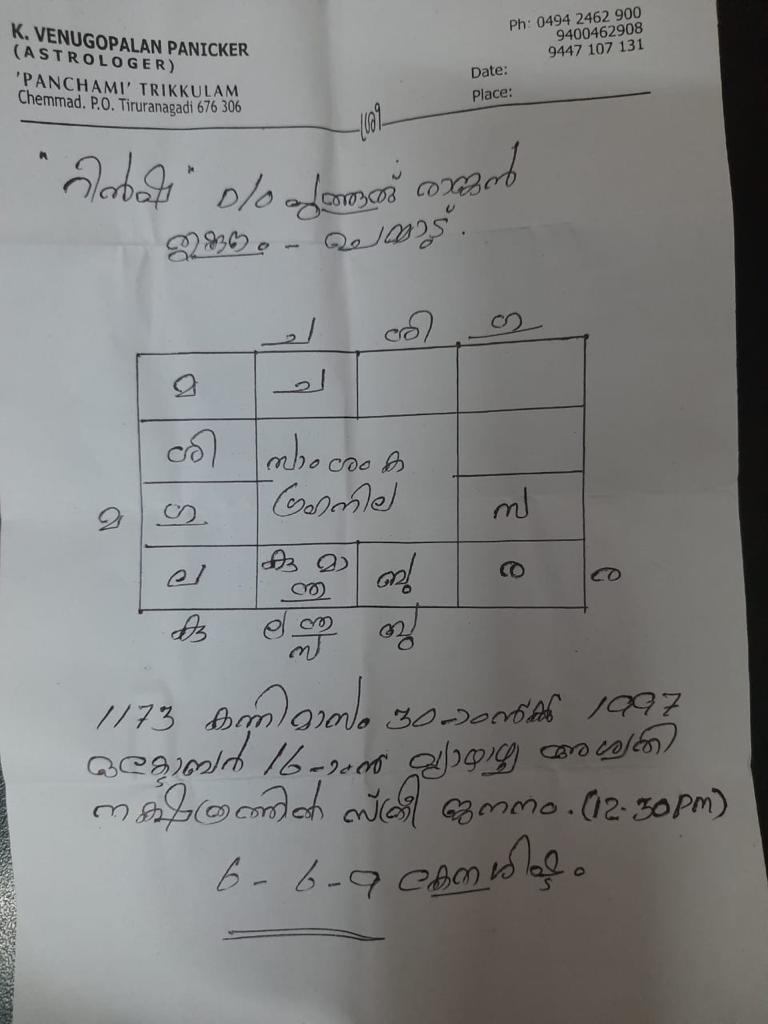 K. VENUGOPALAN PANICKER
(ASTROLOGER)
'PANCHAMI' TRIKKULAM
Chemmad. P.O. Tiruranagadi 676 306
Ph: 0494 2462 900
9400462908
9447 107 131
Date:
Place:
ശ്രീ
"റിൻഷ" D/O രാജൻ
ചെമ്മാട്.
ച ശി ഗു
മ ച
ശി സാംശക
മ ഗു ഗ്രഹനില സ
ല കു മാ ബു ര ര
കു ല സ ബു
1173 കന്നിമാസം 30-ാംന്ക്ക് 1997
ഒക്ടോബർ 16-ാംന് വ്യാഴാഴ്ച അശ്വതി
നക്ഷത്രത്തിൽ സ്ത്രീ ജനനം. (12.30 PM)
6 - 6 - 9 കേതുശിഷ്ടം